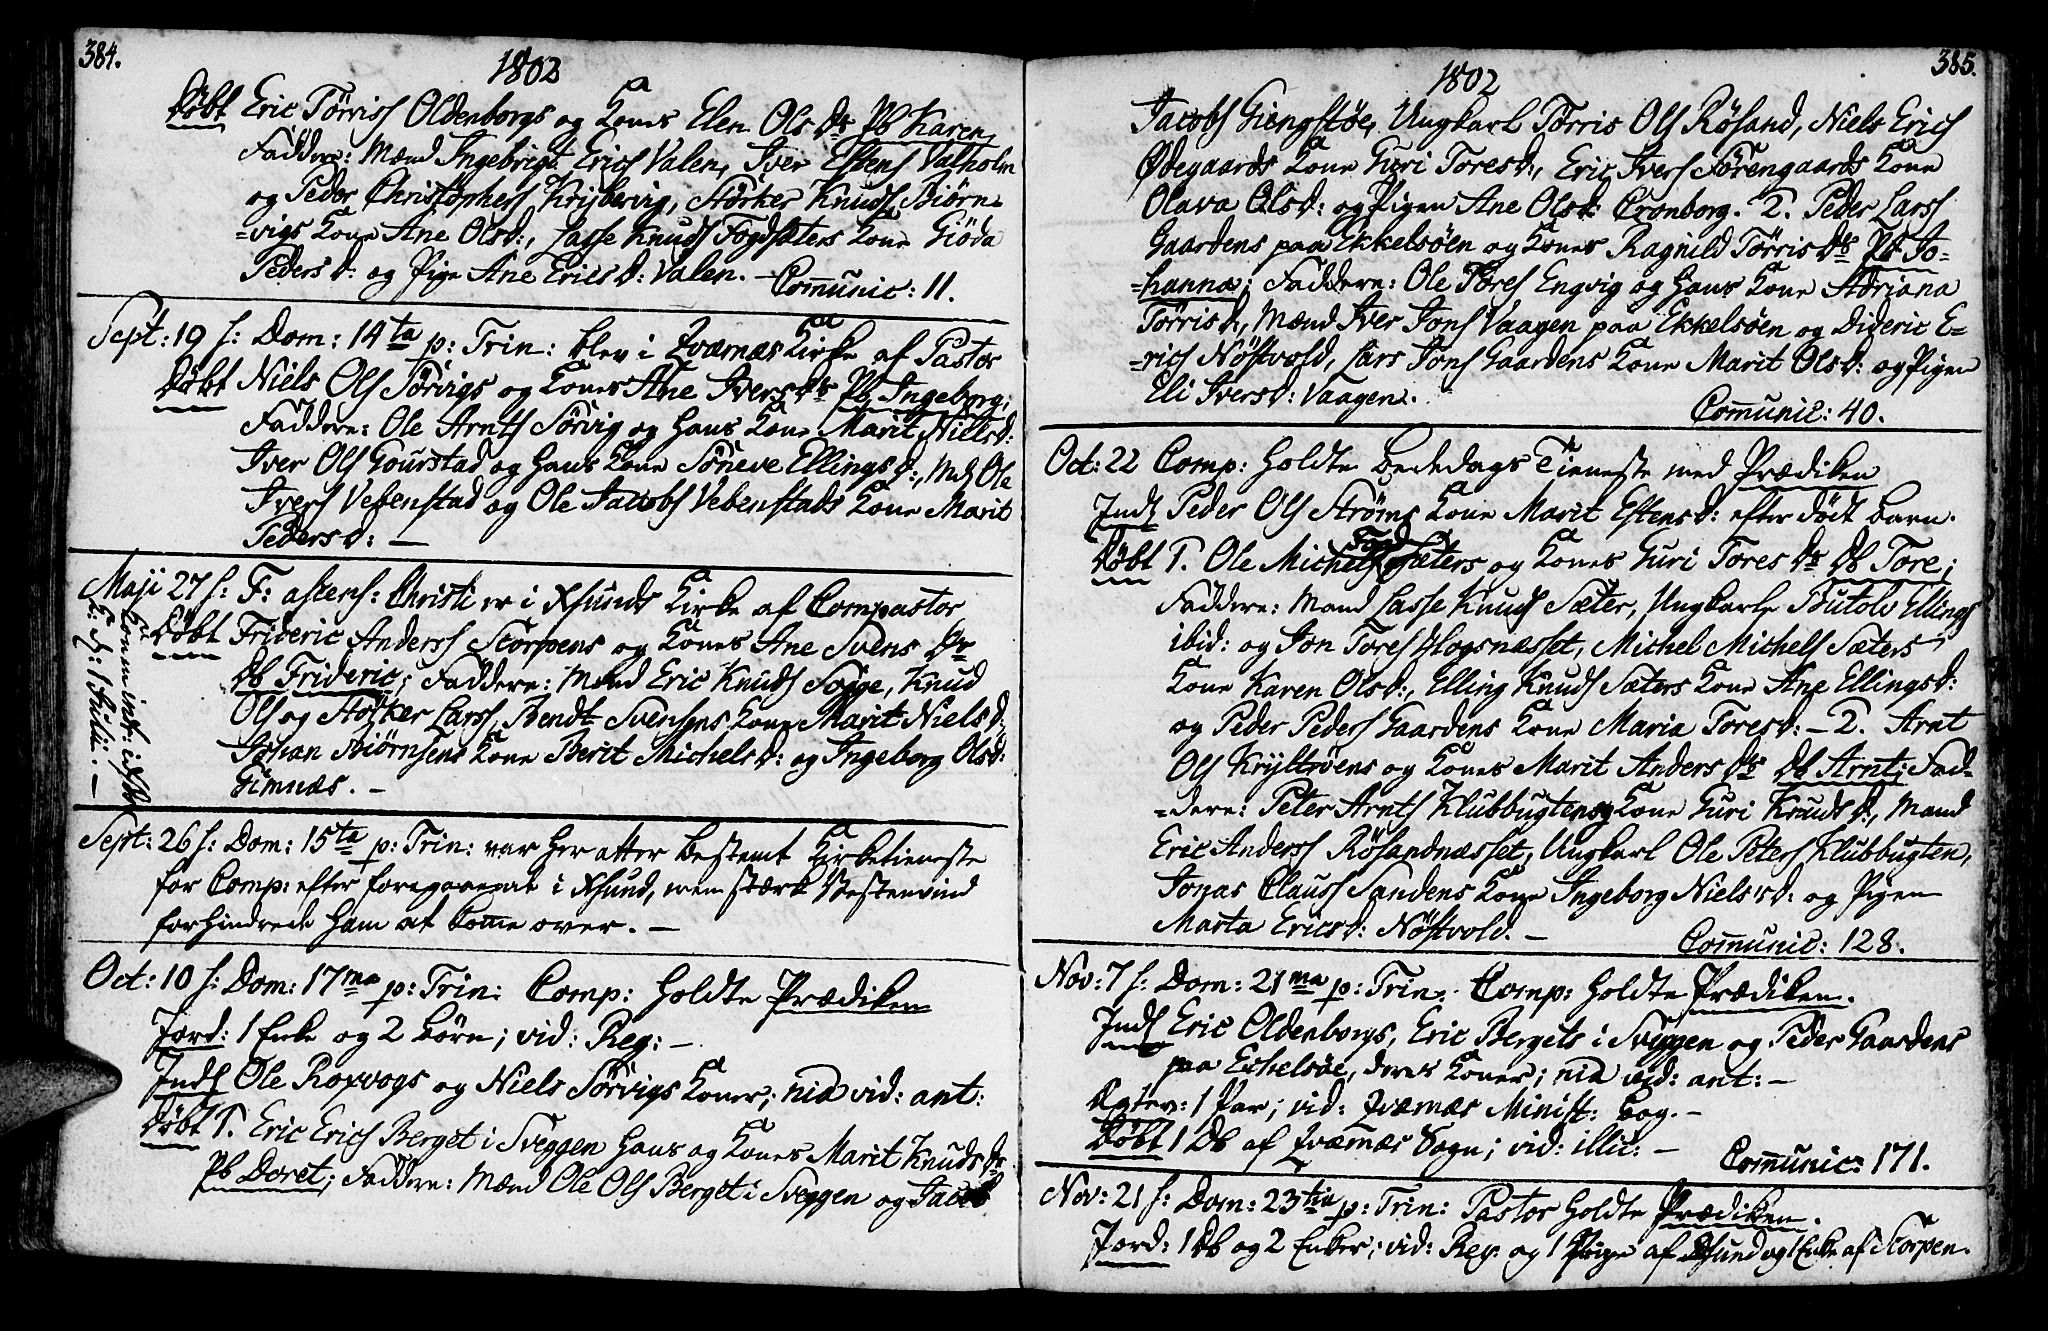 384.
1802
Døbt Eric Tørriss Oldenborgs og Kones Elen Ols Dr Pb Karen,
Faddere: Mænd Ingebrigt Erics Valen, Iver Estens Valholm
og Peder Christophers Kryservig, Størker Knuds Biørn-
-vigs Kone Ane Olsd:, Lasse Knuds Fogdsæters Kone Giøda
Pedersd: og Pige Ane Ericsd: Valen. — Communic: 11.
Sept: 19 s: Dom: 14ta p: Trin: blev i Qværnæs Kirke af Pastor
Døbt Niels Ols Sørvigs og Kones Ane Ivers Dr Pb Ingeborg;
Faddere: Ole Arnts Sørvig og Hans Kone Marit Nielsd:
Iver Ols Gourstad og Hans Kone Søneve Ellingsd:, Md Ole
Ivers Vebenstad og Ole Jacobs Vebenstads Kone Marit
Pedersd: —
Maji 27 s: F: ascens: Christi er i Xsunds Kirke af Compastor
Døbt Frideric Anderss Storpens og Kones Ane Svens Dr
Db Frideric; Faddere: Mænd Eric Knuds Sogge, Knud
Ols og Størker Larss, Bendt Svensens Kone Marit Nielsd:
Johan Biørnsens Kone Berit Michelsd: og Ingeborg Olsd:
Gimnæs. —
Sept: 26 s: Dom: 15ta p: Trin: var her atter bestemt Kirketieneste
for Comp: efter foregaaende i Xsund, men stærk Vestenvind
forhindrede ham at komme over. —
Oct: 10 s: Dom: 17ma p: Trin: Comp: holdte Prædiken
Jord: 1 Enke og 2 børn; vid: Reg: —
Inds Ole Roxvogs og Niels Sørvigs Koner; nid vid: ant:
Døbt 1. Eric Erics Berget i Sveggen Hans og Kones Marit Knuds Dr
Pb Doret; Faddere: Mænd Ole Ols Berget i Sveggen og Jacob
385.
1802
Jacobs Giengstøe, Ungkarl Tørris Ols Røsand, Niels Erics
Ødegaards Kone Guri Toresd:, Eric Ivers Førengaards Kone
Olava Olsd: og Pigen Ane Olsd: Cronborg. 2. Peder Larss
Gaardens paa Ekkelsøen og Kones Ragnild Tørris Dr Pb Jo-
-hanna; Faddere: Ole Tores Engvig og Hans Kone Adriana
Tørrisd:, Mænd Iver Jons Vaagen paa Ekkelsøen og Dideric E-
-rics Nøstvold, Lars Jons Gaardens Kone Marit Olsd: og Pigen
Eli Iversd: Vaagen.
Communic: 40.
Oct: 22 Comp: holdte Bededags Tieneste med Prædiken
Inds Peder Ols Strøms Kone Marit Estensd: efter dødt Barn.
Døbt 1. Ole Michels Fogdsæters og Kones Guri Tores Dr Db Tore;
Faddere: Mænd Lasse Knuds Sæter, Ungkarle Butolv Ellings
ibid: og Jon Tores Hogsnæsset, Michel Michels Sæters
Kone Karen Olsd:, Elling Knuds Sæters Kone Ane Ellingsd:
og Peder Peders Gaardens Kone Maria Toresd: — 2. Arnt
Ols Kryltrøens og Kones Marit Anders Dr Db Arnt; Fad-
-dere: Peter Arnts Klubbugtens Kone Guri Knudsd:, Mænd
Eric Anderss Røsandnæsset, Ungkarl Ole Peters Klubbugten,
Jonas Clauss Sandens Kone Ingeborg Nielsd: og Pigen
Marta Ericsd: Nøstvold. —
Communic: 128.
Nov: 7 s: Dom: 21ma p: Trin: Comp: holdte Prædiken.
Inds Eric Oldenborgs, Eric Bergets i Sveggen og Peder Gaardens
paa Eckelsøe, deres Koner; nid vid: ant: —
Egtev: 1 Par; vid: Qværnæs Minist: bog. —
Døbt 1 Db af Qværnæs Sogn; vid: illic: —
Communic: 171.
Nov: 21 s: Dom: 23tia p: Trin: Pastor holdte Prædiken.
Jord: 1 Db og 2 Enker; vid: Reg: og 1 Pige af Xsund og 1 Enke af Storpen.